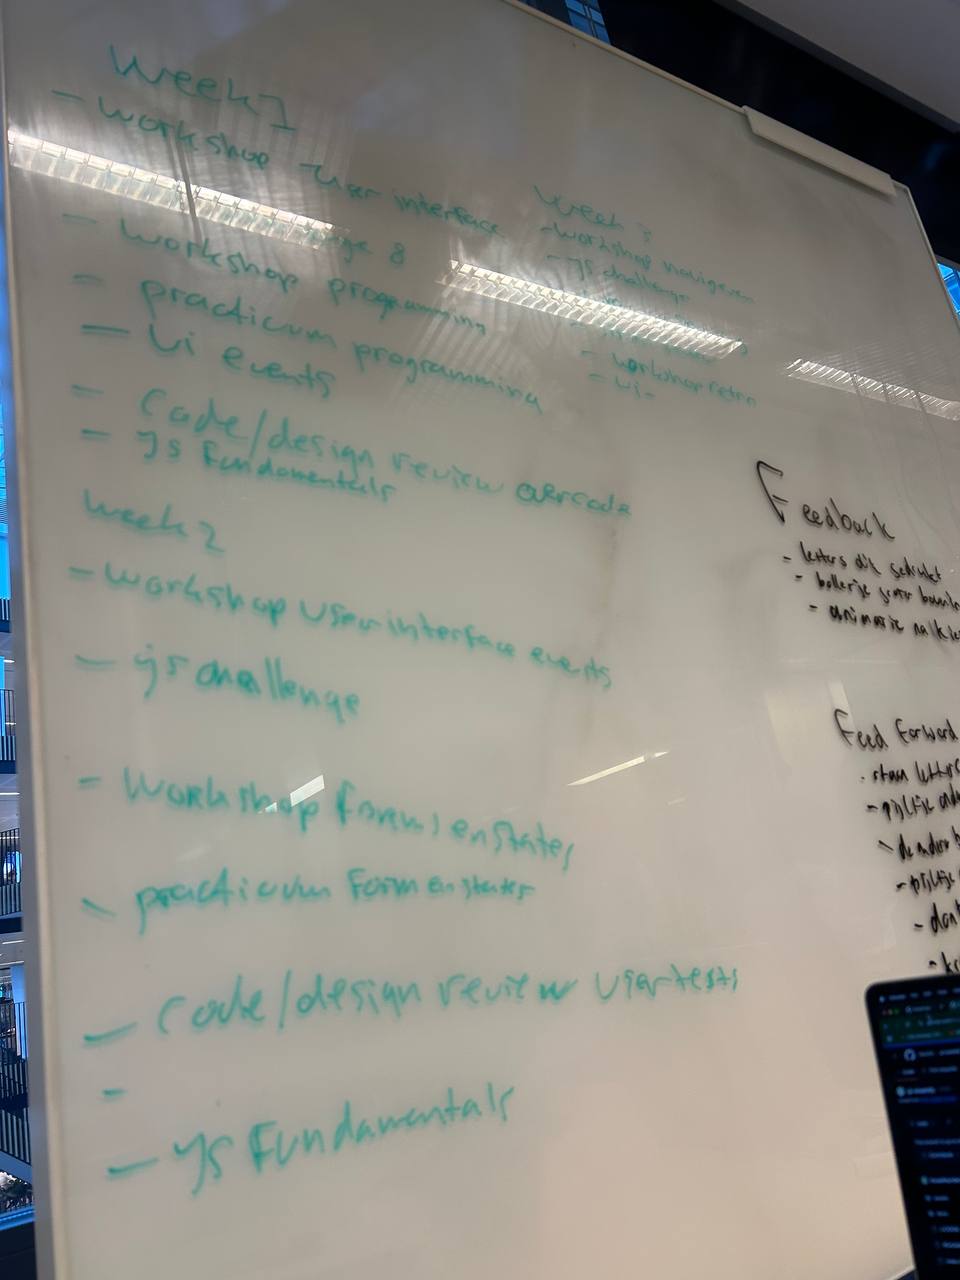 Week 1
- Workshop - User interface
8
- Workshop programming
- practicum programming
- Ui events
- Code/design review overcode
- JS Fundamentals
Week 2
- Workshop User interface events
- js challenge
- Workshop forms en states
- practicum Form en states
- Code/design review Usertests
-
- JS Fundamentals
Week 3
- Workshop navigeren
- JS challenge
- Workshop retro
- Ui -
Feedback
- letters dik gedrukt
- bolletje groter
- animatie
Feed Forward
- pijltje
- pijltje